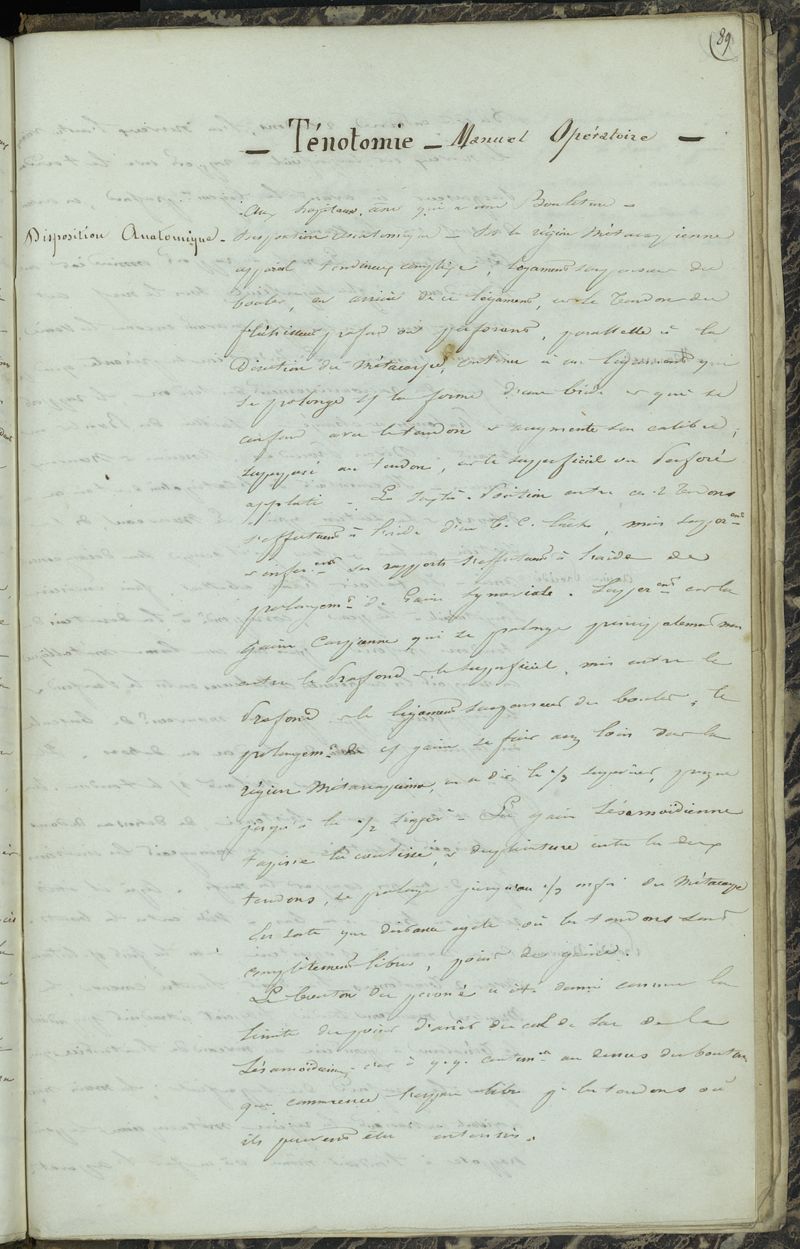 89
— Ténotomie — Manuel Opératoire —
Disposition Anatomique.
Aux hopitaux, âne qui a une Bouleture =
Disposition anatomique — Sur la région Métacarpienne
appareil tendineux complexe, ligament suspenseur du
boulet, en arrière de ce ligament, est le Tendon du
fléchisseur profond ou perforant, parallelle à la
Direction du Métacarpe, entoné à un ligament qui
se prolonge ss la forme d'une bride et qui se
confond avec le tendon et augmente son calibre,
superposé au tendon, est le superficiel ou Perforé
applati. La juxta-Position entre ces 2 Tendons
s'effectuent à l'aide d'un t. c. lache, mais supér.ent
et infér.ent ses rapports s'effectuent à l'aide de
prolongem.s de Gaine synoviale. Supér.ent est la
gaine carpienne qui se prolonge principalement non
entre le Profond et le superficiel, mais entre le
Profond et le ligament suspenseur du boulet, le
prolongem.t de cs gaine se fait assez loin sur la
région Métacarpienne, c'est à dire le 1/3 supérieur, presque
jusqu'à la 1/2 super.e — La gaine Sésamoïdienne
tapisse la coulisse, et
tendons, se prolonge jusqu'au 1/3 infér du Métacarpe
En sorte que distance égale où les tendons sont
complètement libres, point de gaine.
Le bouton du péroné a été donné comme la
limite du point d'arrêt du cul de sac de la
Sésamoïdienne, c'est à q.q. centim.es au dessus du bouton
que commence l'espace libre p.r les tendons où
ils peuvent être intéressés.